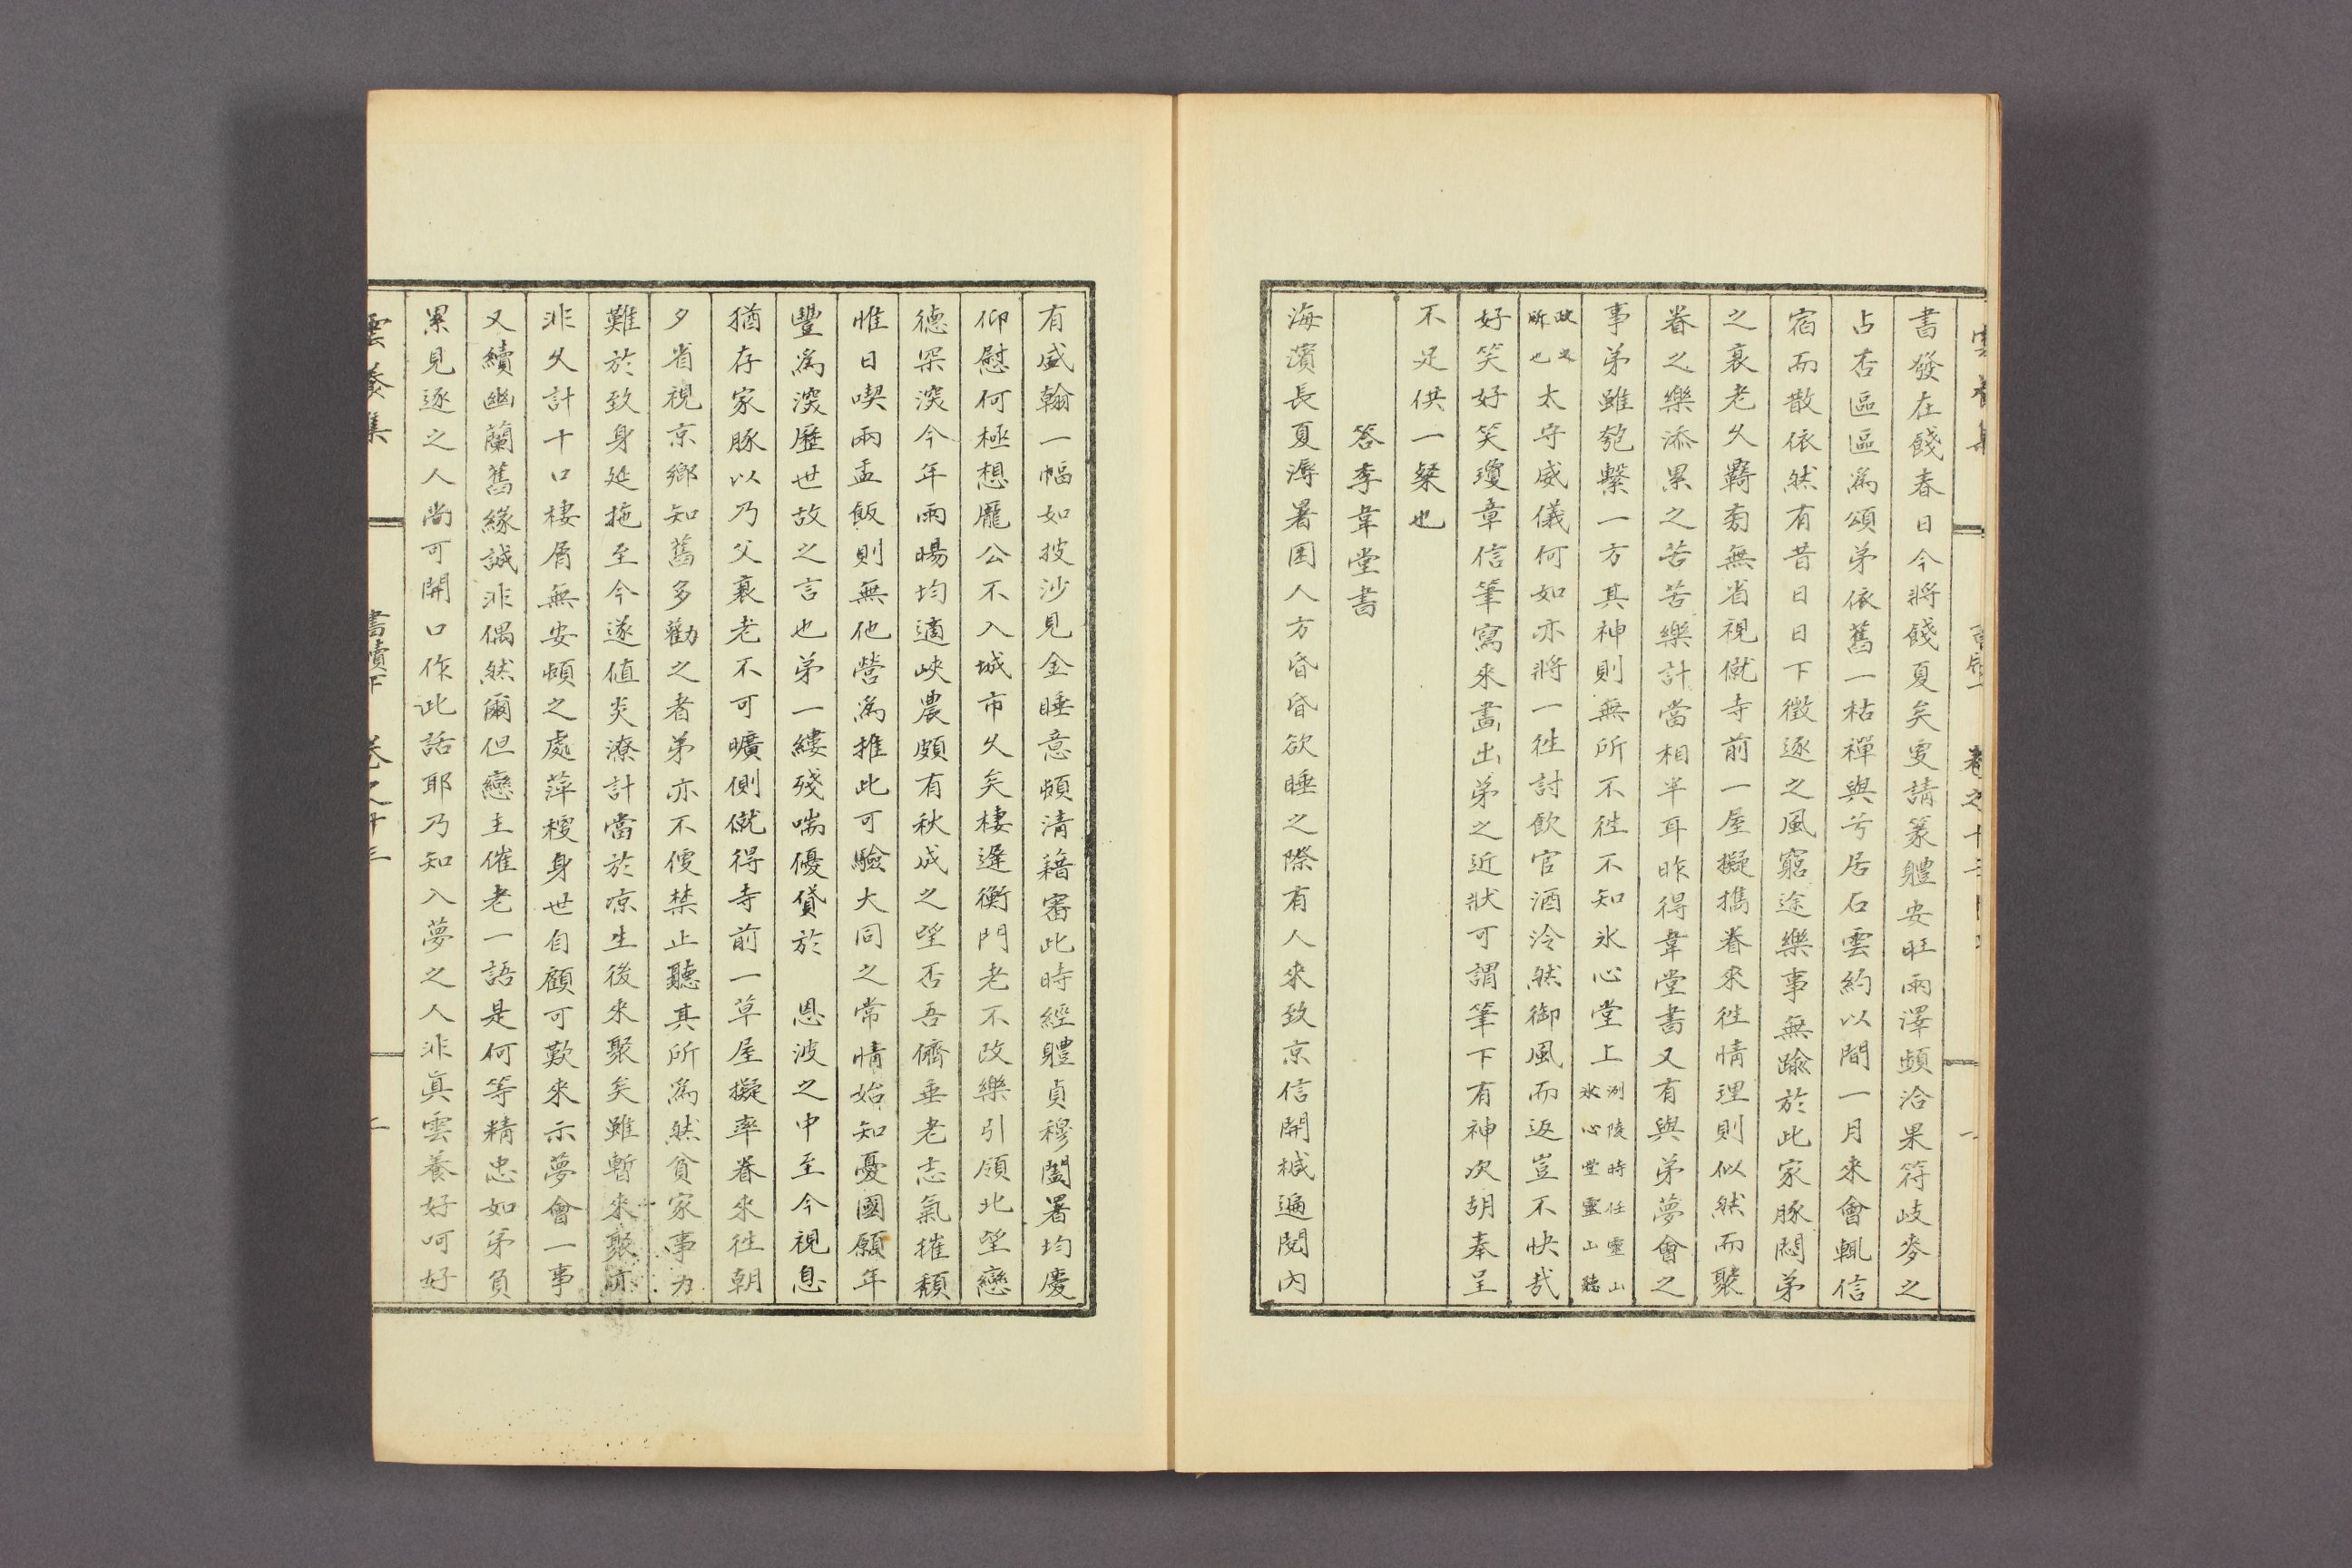 書發在餞春日今將餞夏矣更請篆軆安旺雨澤頗洽果符歧麥之
占否區區爲頌弟依舊一枯禪與兮居石雲約以間一月來會輒信
宿而散依然有昔日日下徵逐之風窮途樂事無踰於此家豚悶弟
之衰老久羇匊無省視僦寺前一屋擬擕眷來徃情理則似然而聚
眷之樂添累之苦苦樂計當相半耳昨得韋堂書又有與弟夢會之
事弟雖匏繫一方其神則無所不徃不知氷心堂上洌陵時任靈山氷心堂靈山聽
政之所也太守威儀何如亦將一徃討飮官酒泠然御風而返豈不快哉
好笑好笑瓊章信筆寫來畵出弟之近狀可謂筆下有神次胡奉呈
不足供一粲也
答李韋堂書
海濱長夏溽暑困人方昏昏欲睡之際有人來致京信開椷遍閱內
有盛翰一幅如披沙見金睡意頓清藉審此時經軆貞穆闔署均慶
仰慰何極想龐公不入城市久矣棲遲衡門老不改樂引領北望戀
德罙深今年雨暘均適峽農頗有秋成之望否吾儕垂老志氣摧頹
惟日喫兩盂飯則無他營爲推此可驗大同之常情始知憂國願年
豐爲深歷世故之言也弟一縷殘喘優貸於 恩波之中至今視息
猶存家豚以乃父衰老不可曠側僦得寺前一草屋擬率眷來徃朝
夕省視京鄉知舊多勸之者弟亦不便禁止聽其所爲然貧家事力
難於致身延拖至今遂値炎潦計當於凉生後來聚矣雖暫來聚亦
非久計十口棲屑無安頓之處萍梗身世自顧可歎來示夢會一事
又續幽蘭舊緣誠非偶然爾但戀主催老一語是何等精忠如弟負
累見逐之人尙可開口作此話耶乃知入夢之人非眞雲養好呵好
雲養集 書牘下 卷之十三 二